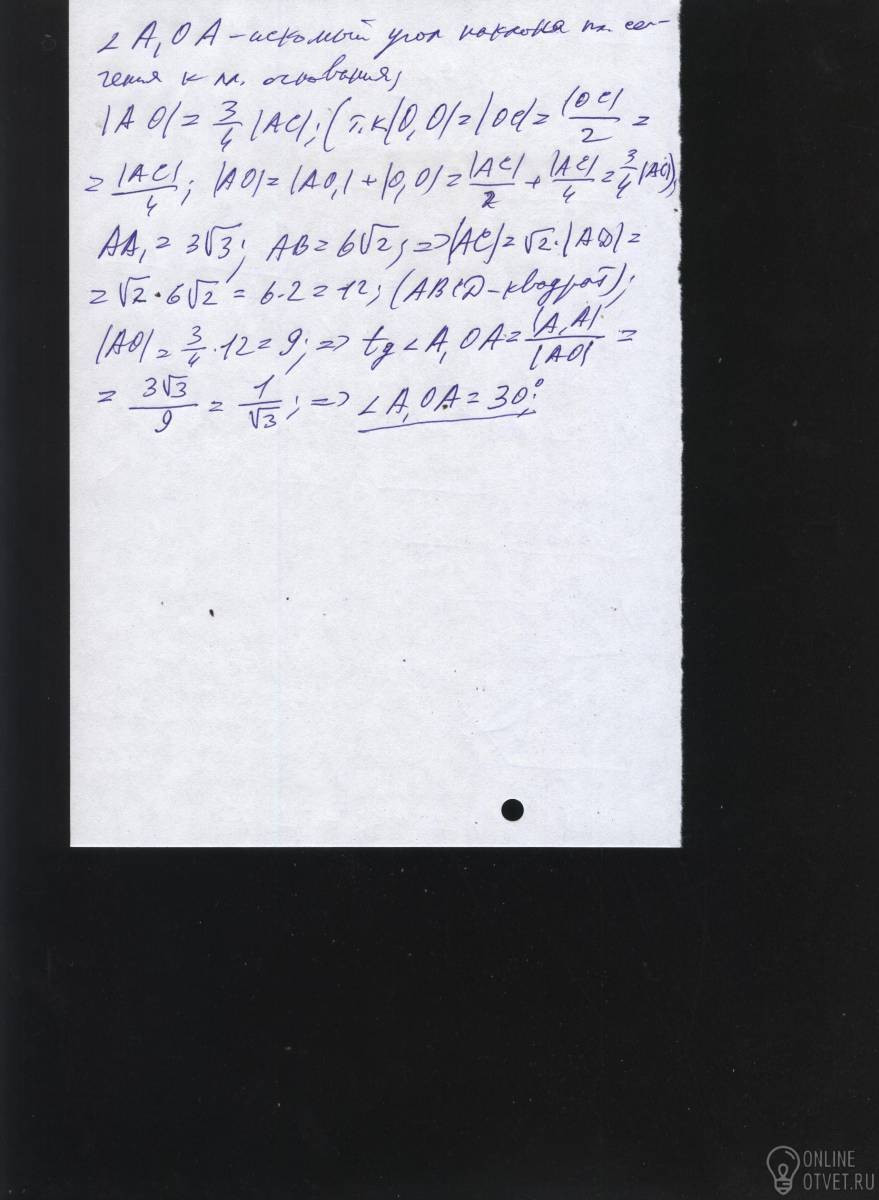 ∠A₁OA – искомый угол наклона пл. сече-
чения к пл. основания;
|AO| = 3/4 |AC|; (т.к |O₁O| = |OC| = |OC|/2 =
= |AC|/4; |AO| = |AO₁| + |O₁O| = |AC|/2 + |AC|/4 = 3/4 |AC|);
AA₁ = 3√3; AB = 6√2; => |AC| = √2·|AD| =
= √2·6√2 = 6·2 = 12; (ABCD – квадрат);
|AO| = 3/4 · 12 = 9; => tg∠A₁OA = |A₁A|/|AO| =
= 3√3/9 = 1/√3; => ∠A₁OA = 30°;
ONLINE
OTVET.RU